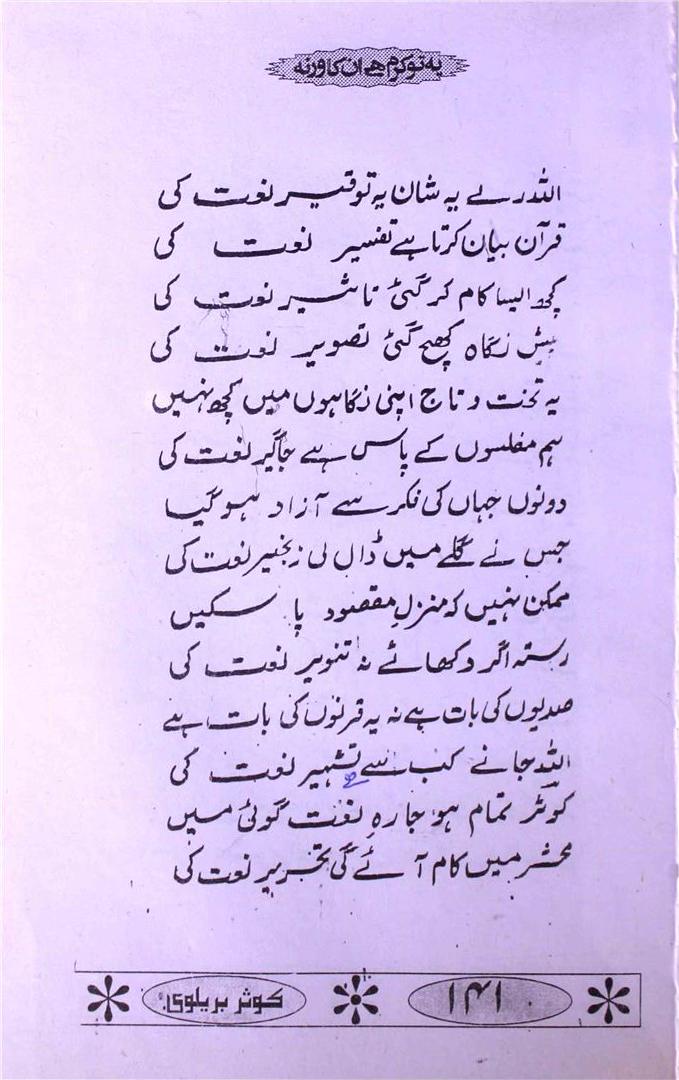 یہ تو کرم ھے ان کا ورنہ
اللہ رے یہ شان یہ توقیر نعت کی
قرآن بیان کرتا ہے تفسیر نعت کی
کچھ ایسا کام کر گئی تاثیر نعت کی
پیش نگاہ کھچ گئی تصویر نعت کی
یہ تخت و تاج اپنی نگاہوں میں کچھ نہیں
ہم مفلسوں کے پاس ہے جاگیر نعت کی
دونوں جہاں کی فکر سے آزاد ہو گیا
جس نے گلے میں ڈال لی زنجیر نعت کی
ممکن نہیں کہ منزلِ مقصود پا سکیں
رستہ اگر دکھائے نہ تنویر نعت کی
صدیوں کی بات ہے نہ یہ قرنوں کی بات ہے
اللہ جانے کب سے ہے تشہیر نعت کی
کوثر تمام ہو جا رہِ نعت گوئی میں
محشر میں کام آئے گی تحریر نعت کی
کوثر بریلوی
۱۴۱